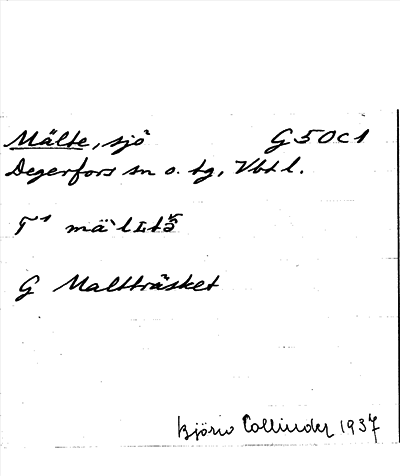 Mälte, sjö G50c1
Degerfors sn o. tg, Vbtl.
G Maltträsket
Björn Collinder 1937